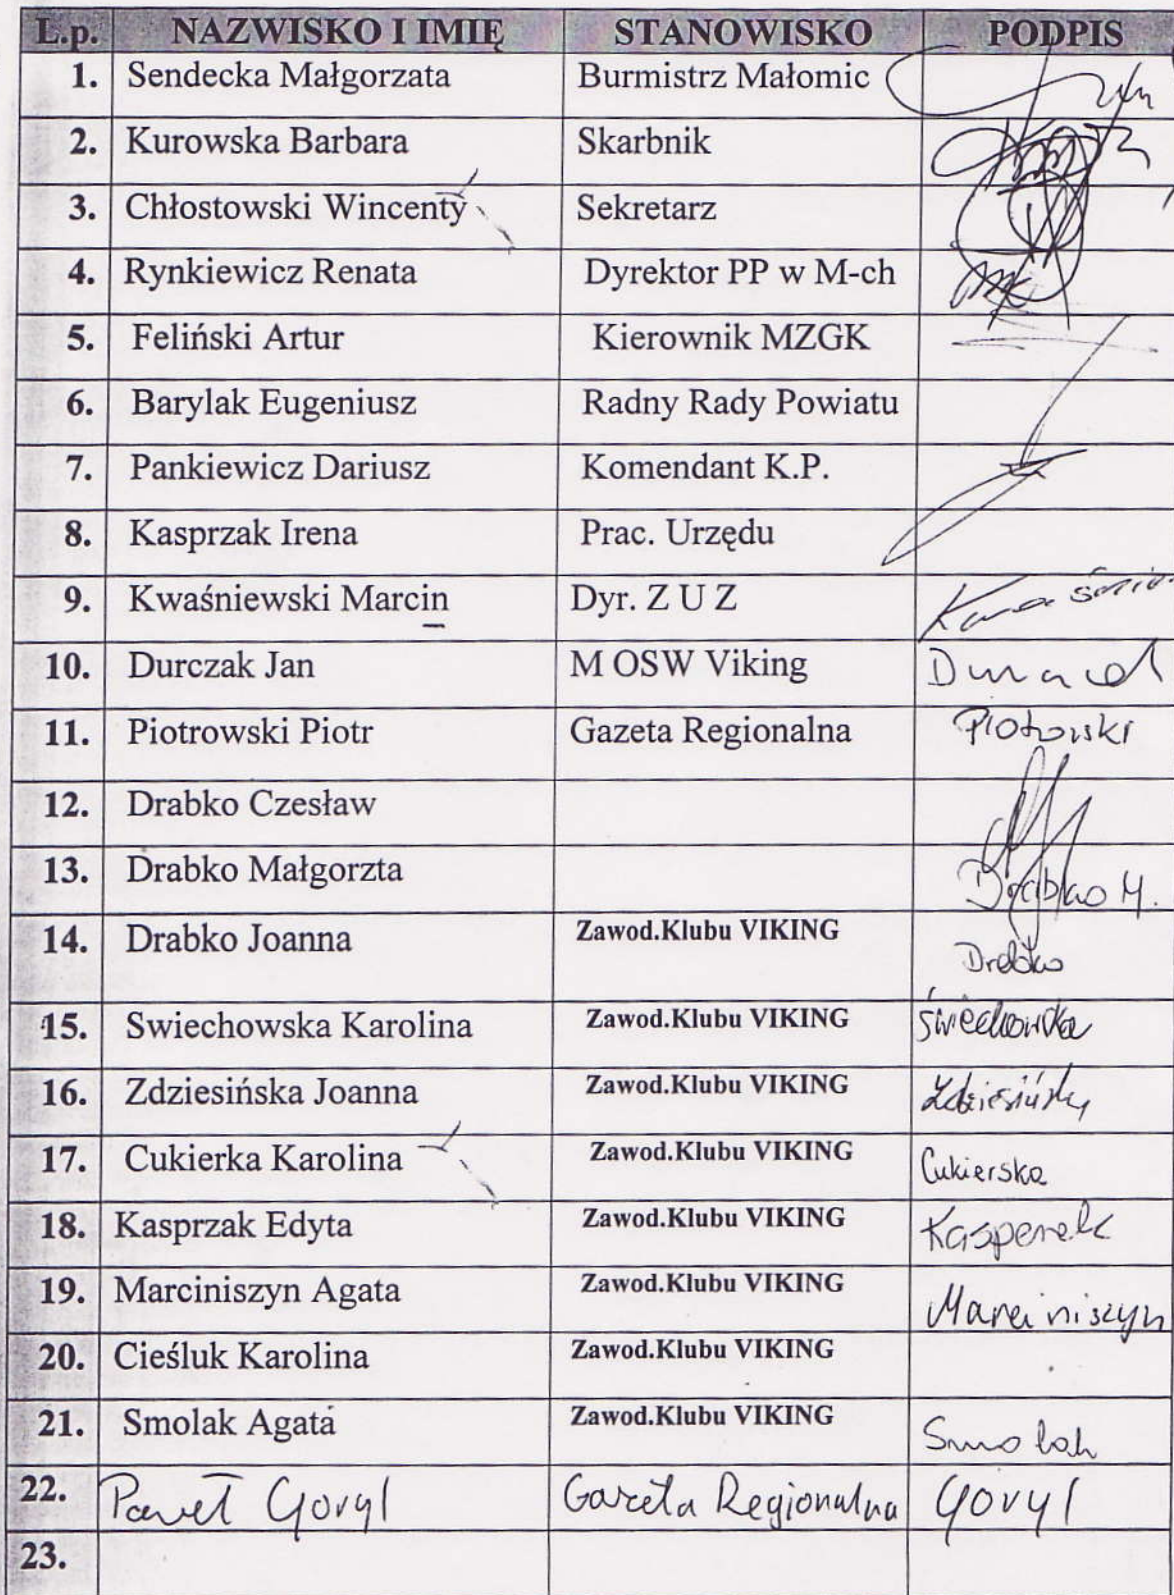 L.p. NAZWISKO I IMIĘ STANOWISKO PODPIS
1. Sendecka Małgorzata Burmistrz Małomic
2. Kurowska Barbara Skarbnik
3. Chłostowski Wincenty Sekretarz
4. Rynkiewicz Renata Dyrektor PP w M-ch
5. Feliński Artur Kierownik MZGK
6. Barylak Eugeniusz Radny Rady Powiatu
7. Pankiewicz Dariusz Komendant K.P.
8. Kasprzak Irena Prac. Urzędu
9. Kwaśniewski Marcin Dyr. Z U Z
10. Durczak Jan M OSW Viking
11. Piotrowski Piotr Gazeta Regionalna Piotrowski
12. Drabko Czesław
13. Drabko Małgorzta Drabko M.
14. Drabko Joanna Zawod.Klubu VIKING Drabko
15. Swiechowska Karolina Zawod.Klubu VIKING Świechowska
16. Zdziesińska Joanna Zawod.Klubu VIKING Zdziesińska
17. Cukierka Karolina Zawod.Klubu VIKING Cukierska
18. Kasprzak Edyta Zawod.Klubu VIKING Kasperek
19. Marciniszyn Agata Zawod.Klubu VIKING Marciniszyn
20. Cieśluk Karolina Zawod.Klubu VIKING
21. Smolak Agata Zawod.Klubu VIKING Smolak
22. Paweł Goryl Gazeta Regionalna Goryl
23.